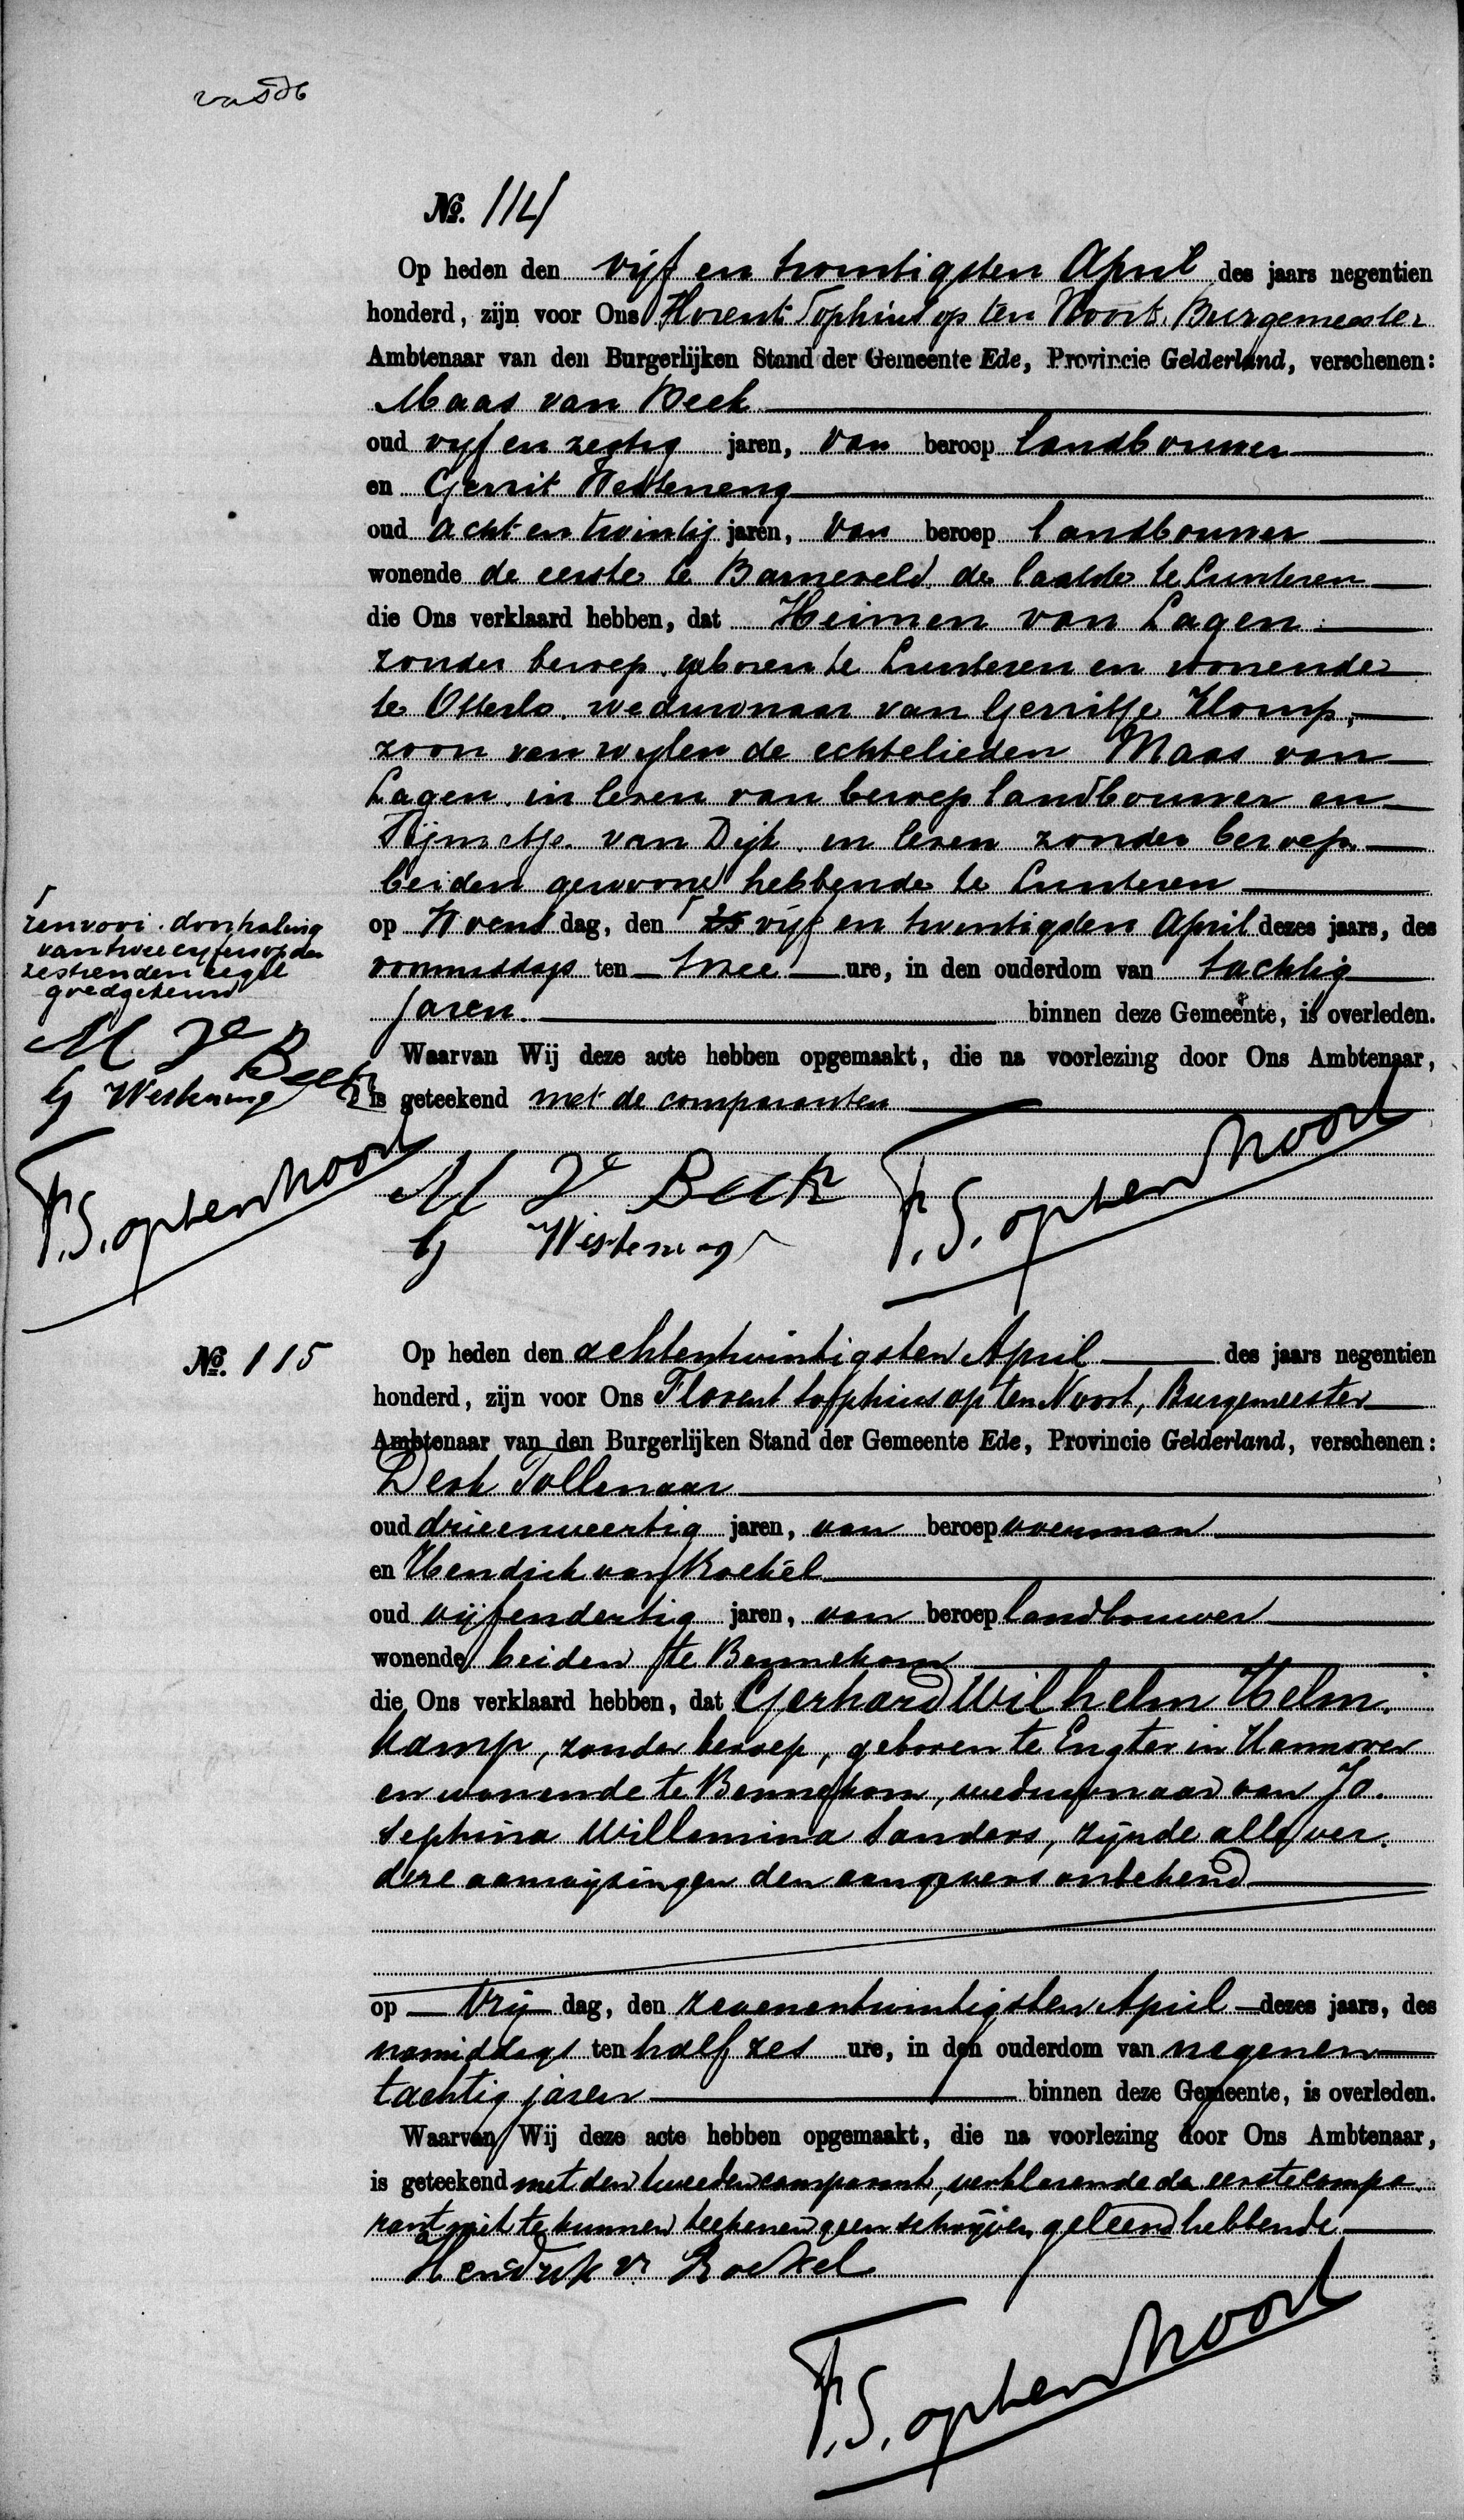 No. 114
Op heden den vijf en twintigsten April des jaars negentien
honderd, zijn voor Ons Florent Sophius op ten Noort, Burgemeester
Ambtenaar van den Burgerlijken Stand der Gemeente Ede, Provincie Gelderland, verschenen:
Maas van Beek
oud vijf en zestig jaren, van beroep landbouwer
en Gerrit Westeneng
oud acht en twintig jaren, van beroep landbouwer
wonende de eerste te Barneveld de laatste te Lunteren
die Ons verklaard hebben, dat Heimen van Lagen
zonder beroep, geboren te Lunteren en wonende
te Otterlo, weduwnaar van Gerritje Klomp,
zoon van wijlen de echtelieden Maas van
Lagen in leven van beroep landbouwer en
Rijmetje van Dijk in leven zonder beroep
beiden gewoond hebbende te Lunteren
op Woens dag, den 25 vijf en twintigsten April dezes jaars, des
voormiddags ten twee ure, in den ouderdom van tachtig
jaren. binnen deze Gemeente, is overleden.
Waarvan Wij deze acte hebben opgemaakt, die na voorlezing door Ons Ambtenaar,
is geteekend met de comparanten
M Ve Beek
G Westeneng
F.S. op ten Noort
renvooi. doorhaling
van twee cyfers op den
zestienden regel
goedgekeurd
M Ve Beek
G Westeneng
F.S. op ten Noort
No. 115
Op heden den achtentwintigsten April des jaars negentien
honderd, zijn voor Ons Florent Sophius op ten Noort, Burgemeester
Ambtenaar van den Burgerlijken Stand der Gemeente Ede, Provincie Gelderland, verschenen:
Derk Tollenaar
oud drieenveertig jaren, van beroep voerman
en Hendrik van Roekel
oud vijfendertig jaren, van beroep landbouwer
wonende beiden te Bennekom
die Ons verklaard hebben, dat Gerhard Wilhelm Helm.
kamp, zonder beroep, geboren te Engter in Hannover
en wonende te Bennekom, weduwnaar van Jo.
sephina Willemina Sanders, zijnde alle ver.
dere aanwijzingen den aangevers onbekend
op Vrij dag, den zevenentwintigsten April dezes jaars, des
namiddags ten half zes ure, in den ouderdom van negenen
tachtig jaren binnen deze Gemeente, is overleden.
Waarvan Wij deze acte hebben opgemaakt, die na voorlezing door Ons Ambtenaar,
is geteekend met den tweeden comparant, verklarende de eerste compa
rant niet te kunnen teekenen geen schrijven geleerd hebbende
Hendrik vn Roekel
F.S. op ten Noort